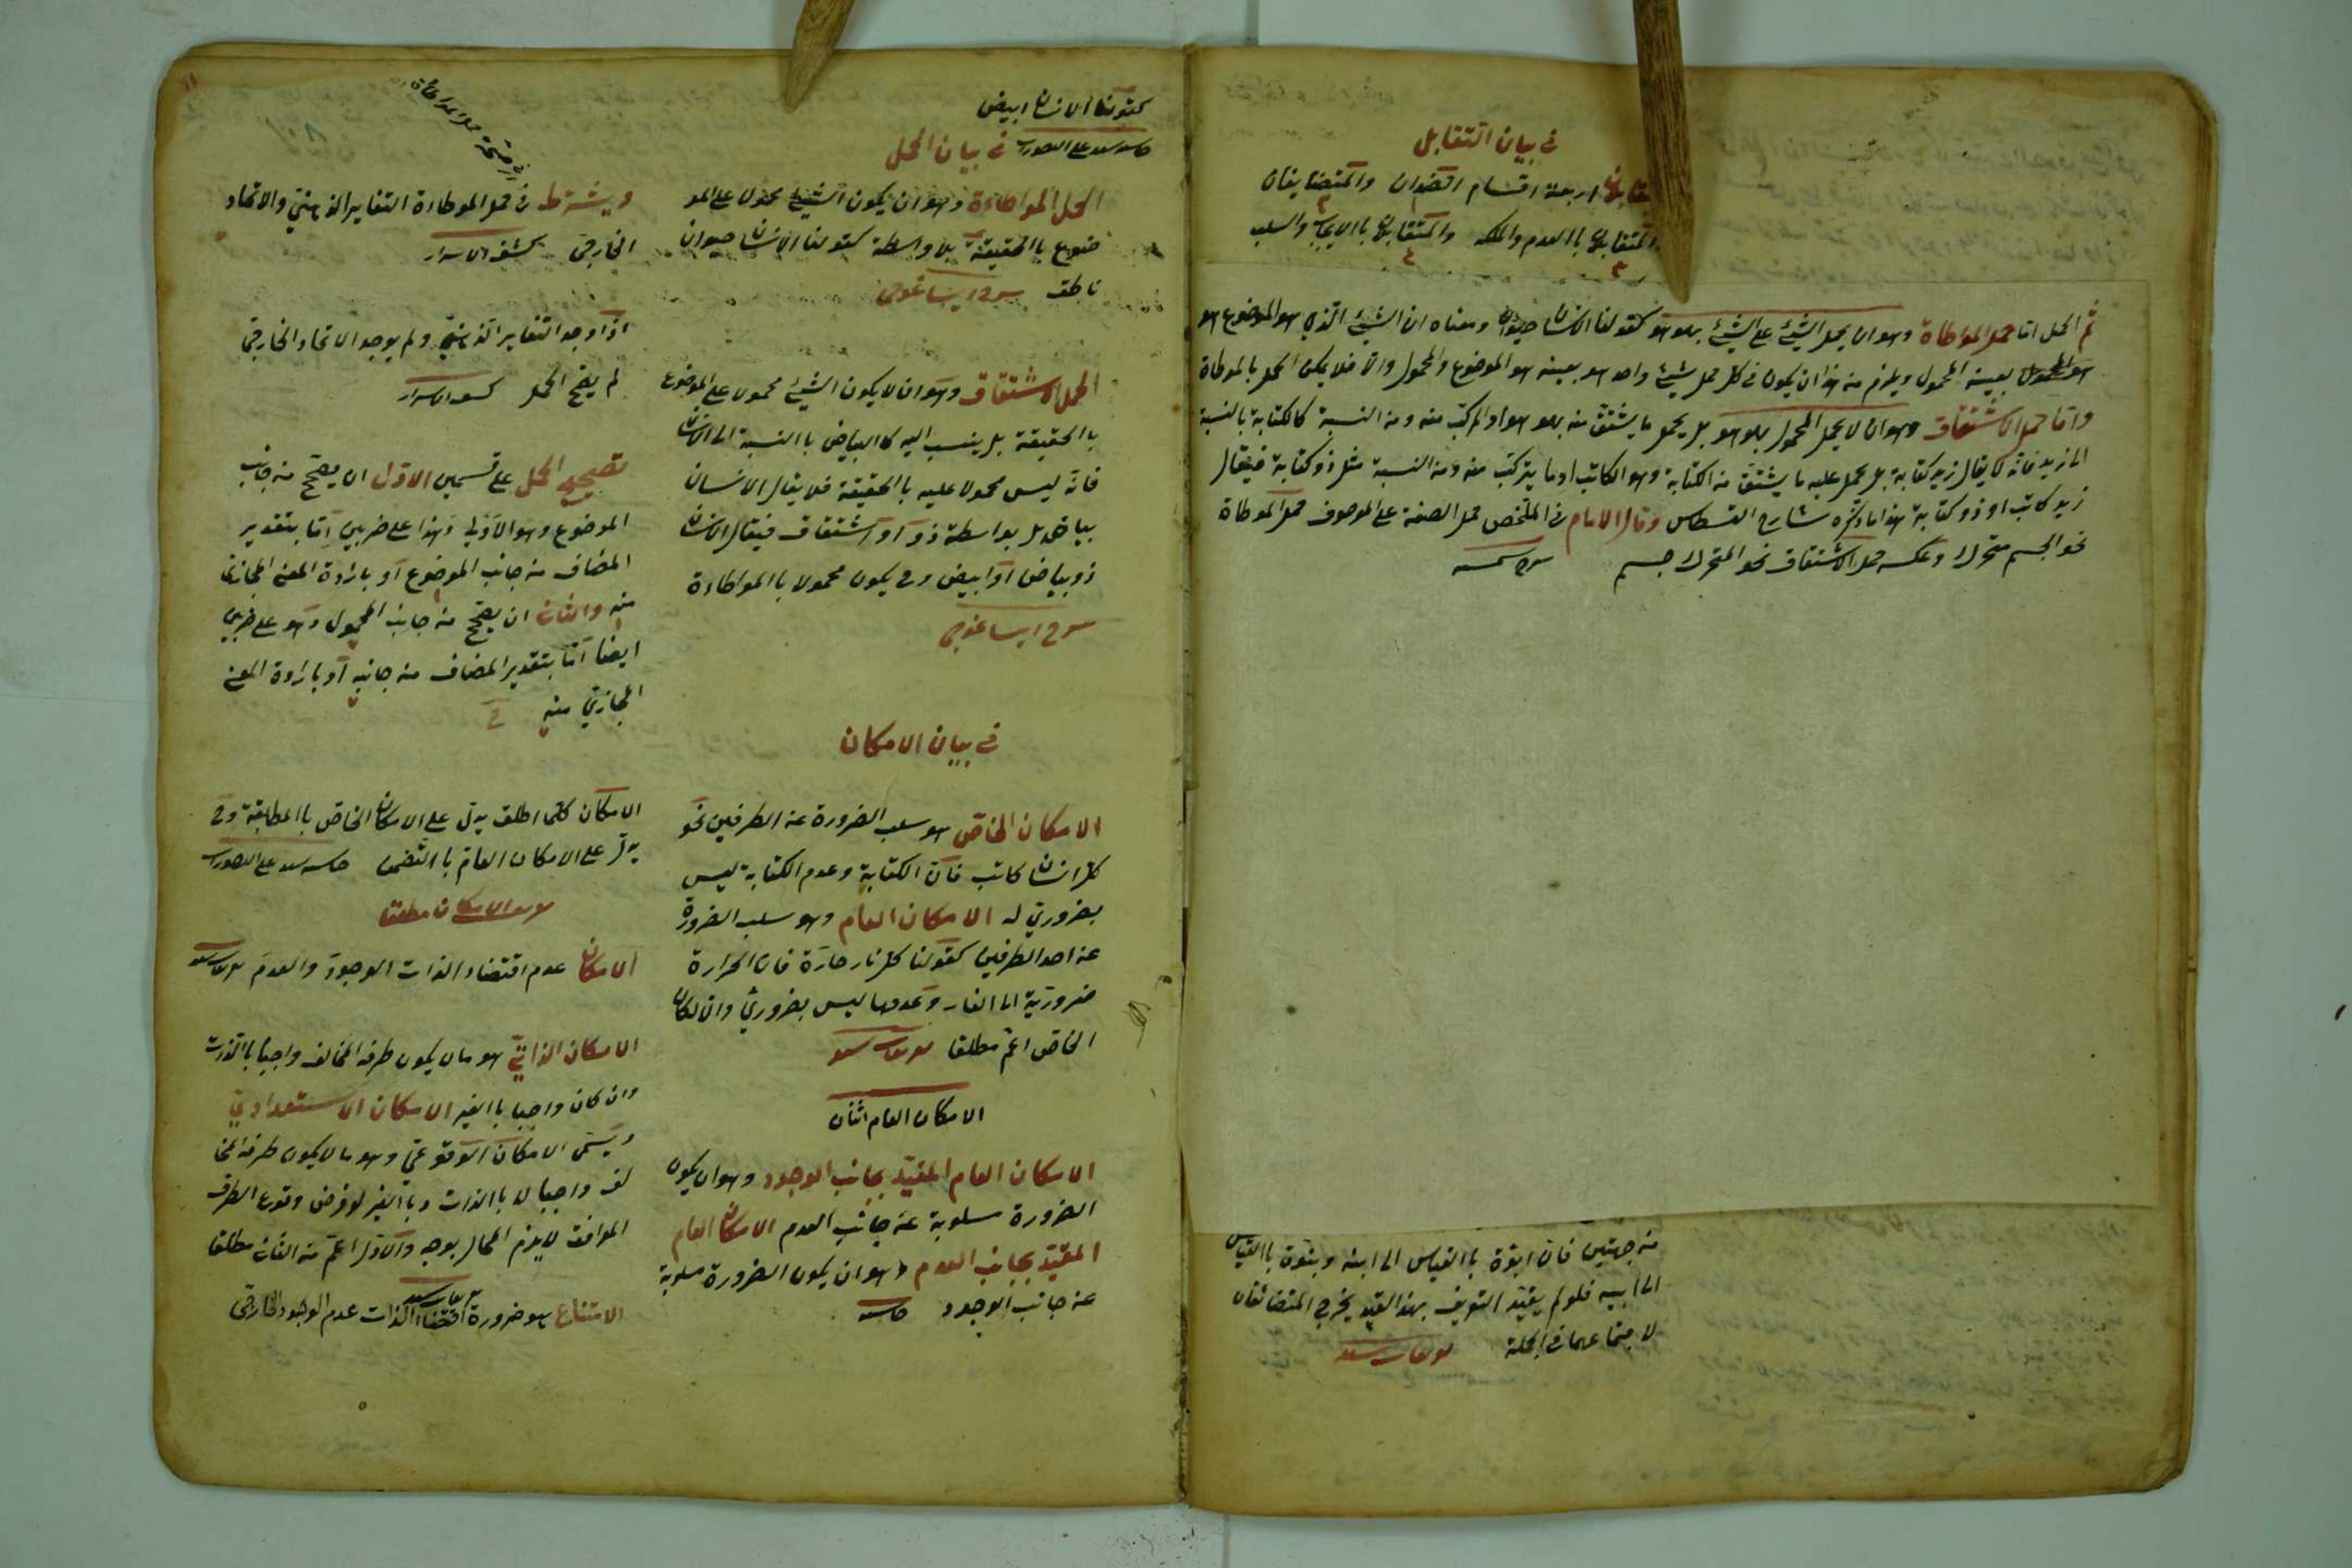 في بيان التقابل
اربعة اقسام الضدان والمتضايفان
والمتقابلان باالعدم والملكه والمتقابلان باالايجاب والسلب
ثم الحمل اما حمل المواطاة وهو ان يحمل الشيئ على الشيئ بهو هو كقولنا الانسان حيوان ومعناه ان الشيئ الذي هو الموضوع هو
بعينه المحمول ويلزم من هذا ان يكون في كل حمل شيئ واحد هو بعينه هو الموضوع والمحمول والا فلا يكن الحمل بالمواطاة
واما حمل الاشتقاق وهو ان لا يحمل المحمول بهو هو بل يحمل ما يشتق منه بهو هو او المركب منه ومن النسبة كالكتابة بالنسبة
الى زيد فانه لا يقال زيد كتابة بل يحمل عليه ما يشتق من الكتابة وهو الكاتب او ما يتركب منه ومن النسبة مثل ذو كتابة فيقال
زيد كاتب او ذو كتابة هذا ما ذكره شارح القسطاس وقال الامام في الملخص حمل الصفة على الموصوف حمل المواطاة
نحو الجسم متحرك وعكسه حمل الاشتقاق نحو المتحرك جسم
من جهتين فان ابوة باالقياس الى ابنه وبنوة باالقياس
الى ابيه فلو لم يقيد التعريف بهذا القيد يخرج المتضائفان
لاجتماعهما في الجملة
كقولنا الانسان ابيض
في بيان الحمل
الحمل المواطاءة وهو ان يكون الشيئ محمولا على المو
ضوع باالحقيقة بلا واسطة كقولنا الانسان حيوان
ناطق شرح ايساغوجى
الحمل الاشتقاق وهو ان لا يكون الشيئ محمولا على الموضوع
باالحقيقة بل ينسب اليه كاالبياض باالنسبة الى الانسان
فانه ليس محمولا عليه باالحقيقة فلا يقال الانسان
بياض بل بواسطة ذو او اشتقاق فيقال الانسان
ذو بياض او ابيض وح يكون محمولا باالمواطاءة
شرح ايساغوجي
في بيان الامكان
الامكان الخاص هو سلب الضرورة عن الطرفين نحو
كل انسان كاتب فان الكتابة وعدم الكتابة ليس
بضروري له الامكان العام وهو سلب الضرورة
عن احد الطرفين كقولنا كل نار حارة فان الحرارة
ضرورية الى النار وعدمها ليس بضروري
الخاص اعم مطلقا
الامكان العام اثنان
الامكان العام المقيد بجانب الوجود وهو ان يكون
الضرورة مسلوبة عن جانب العدم الامكان العام
المقيد بجانب العدم وهو ان يكون الضرورة مسلوبة
عن جانب الوجود
ويشترط في حمل المواطاءة التغاير الذهني والاتحاد
الخارجي كشف الاسرار
اذا وجد التغاير الذهني ولم يوجد الاتحاد الخارجي
لم يصح الحمل كشف الاسرار
تصحيح الحمل على قسمين الاول ان يصحح من جانب
الموضوع وهو الاولى وهذا على ضربين اما بتقدير
المضاف من جانب الموضوع او بارادة المعنى المجازي
منه والثاني ان يصحح من جانب المحمول وهو على ضربين
ايضا اما بتقدير المضاف من جانبه او بارادة المعنى
المجازي منه
الامكان كلما اطلق يدل على الامكان الخاص باالمطابقة وح
يدل على الامكان العام باالتضمن
الامكان مطلقا
الامكان عدم اقتضاء الذات الوجود والعدم
الامكان الذاتي هو ما لا يكون طرفه المخالف واجبا باالذات
وان كان واجبا باالغير الامكان الاستعدادي
ويسمى الامكان الوقوعي وهو ما لا يكون طرفه المخا
لف واجبا لا باالذات وباالغير لو فرض وقوع الطرف
الموافق لا يلزم المحال بوجه والاول اعم من الثاني مطلقا
الامتناع هو ضرورة اقتضاء الذات عدم الوجود الخارجي